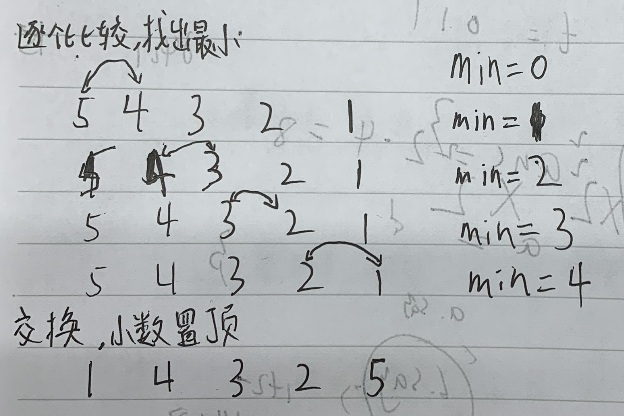 逐个比较,找出最小:
min=0
5 4 3 2 1 min=1
5 4 3 2 1 min=2
5 4 3 2 1 min=3
5 4 3 2 1 min=4
交换,小数置顶
1 4 3 2 5